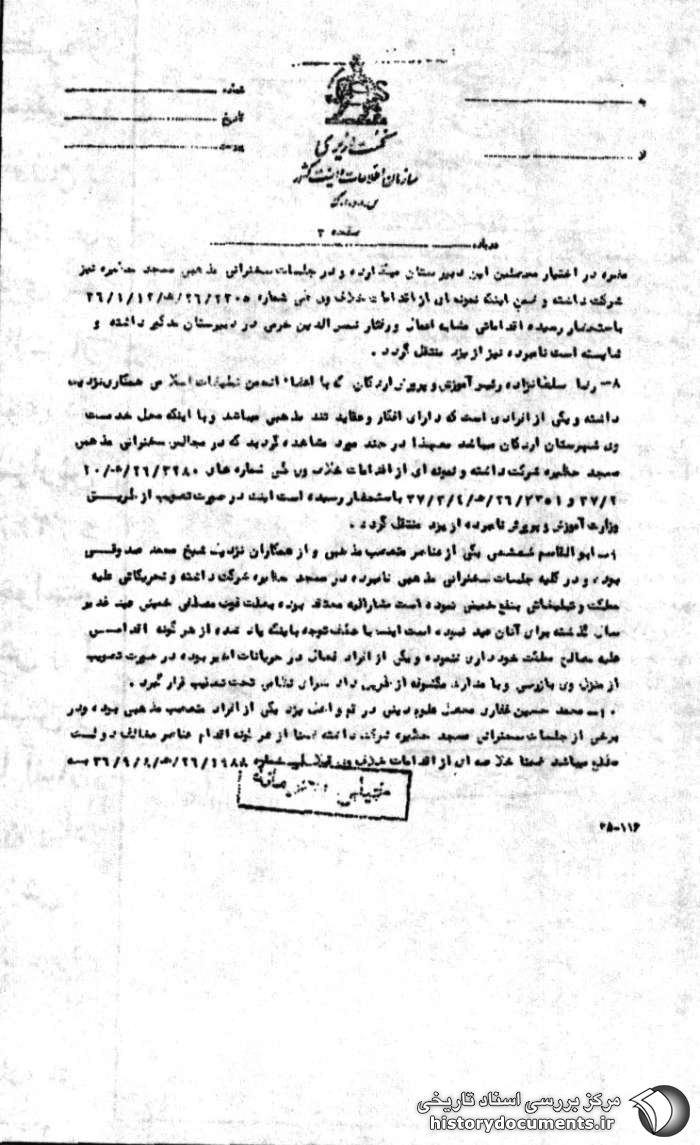 شماره
تاریخ
پیوست
به
از
نخست وزیری
سازمان اطلاعات و امنیت کشور
س.ا.و.ا.ک
صفحه ۳
درباره
در اختیار محصلین این دبیرستان میگذارده و در جلسات سخنرانی مذهبی مسجد حظیره نیز
شرکت داشته و ضمن اینکه نمونه ای از اقدامات خلاف وی طی شماره ۲۶/۲۲۰۵/ه‍ـ ۳۶/۱/۱۲
باستحضار رسیده اقداماتی مشابه اعمال و رفتار نصرالدین خرمی در دبیرستان مذکور داشته و
شایسته است نامبرده نیز از یزد منتقل گردد .
۸- رضا سلطانزاده رئیس آموزش و پرورش اردکان که با اعضاء انجمن تبلیغات اسلامی همکاری نزدیک
داشته و یکی از افرادی است که دارای افکار و عقاید تند مذهبی میباشد و با اینکه محل خدمت
وی شهرستان اردکان میباشد معهذا در چند مورد مشاهده گردید که در مجالس سخنرانی مذهبی
مسجد حظیره شرکت داشته و نمونه ای از اقدامات خلاف وی طی شماره های ۲۶/۳۲۸۰/ه‍ـ ۲۰/
۳۷/۲ و ۲۶/۲۳۵۱/ه‍ـ ۳۷/۳/۴ باستحضار رسیده است اینک در صورت تصویب از طریق
وزارت آموزش و پرورش نامبرده از یزد منتقل گردد .
۹- ابوالقاسم شمشمی یکی از عناصر متعصب مذهبی و از همکاران نزدیک شیخ محمد صدوقی
بوده و در کلیه جلسات سخنرانی مذهبی نامبرده در مسجد حظیره شرکت داشته و تحریکاتی علیه
مملکت و تبلیغاتی بنفع خمینی نموده است مشارالیه معتقد بوده بعلت فوت مصطفی خمینی عید غدیر
سال گذشته برای آنان عید نبوده است اینک با عطف توجه باینکه یاد شده از هر گونه اقدامی
علیه مصالح مملکت خودداری ننموده و یکی از افراد فعال در جریانات اخیر بوده در صورت تصویب
از منزل وی بازرسی و با مدارک مکشوفه از طریق دادسرای نظامی تحت تعقیب قرار گیرد .
۱۰- محمد حسین غفاری محصل علوم دینی در قم و اهل یزد یکی از افراد متعصب مذهبی بوده و در
برخی از جلسات سخنرانی مسجد حظیره شرکت داشته ضمنا از هر گونه اقدام عناصر مخالف دولت
مطلع میباشد ضمنا خلاصه ای از اقدامات خلاف وی طی شماره ۲۶/۱۹۸۸/ه‍ـ ۳۶/۹/۸ به
خیلی محرمانه
۲۵-۱۱۶
مرکز بررسی اسناد تاریخی
historydocuments.ir